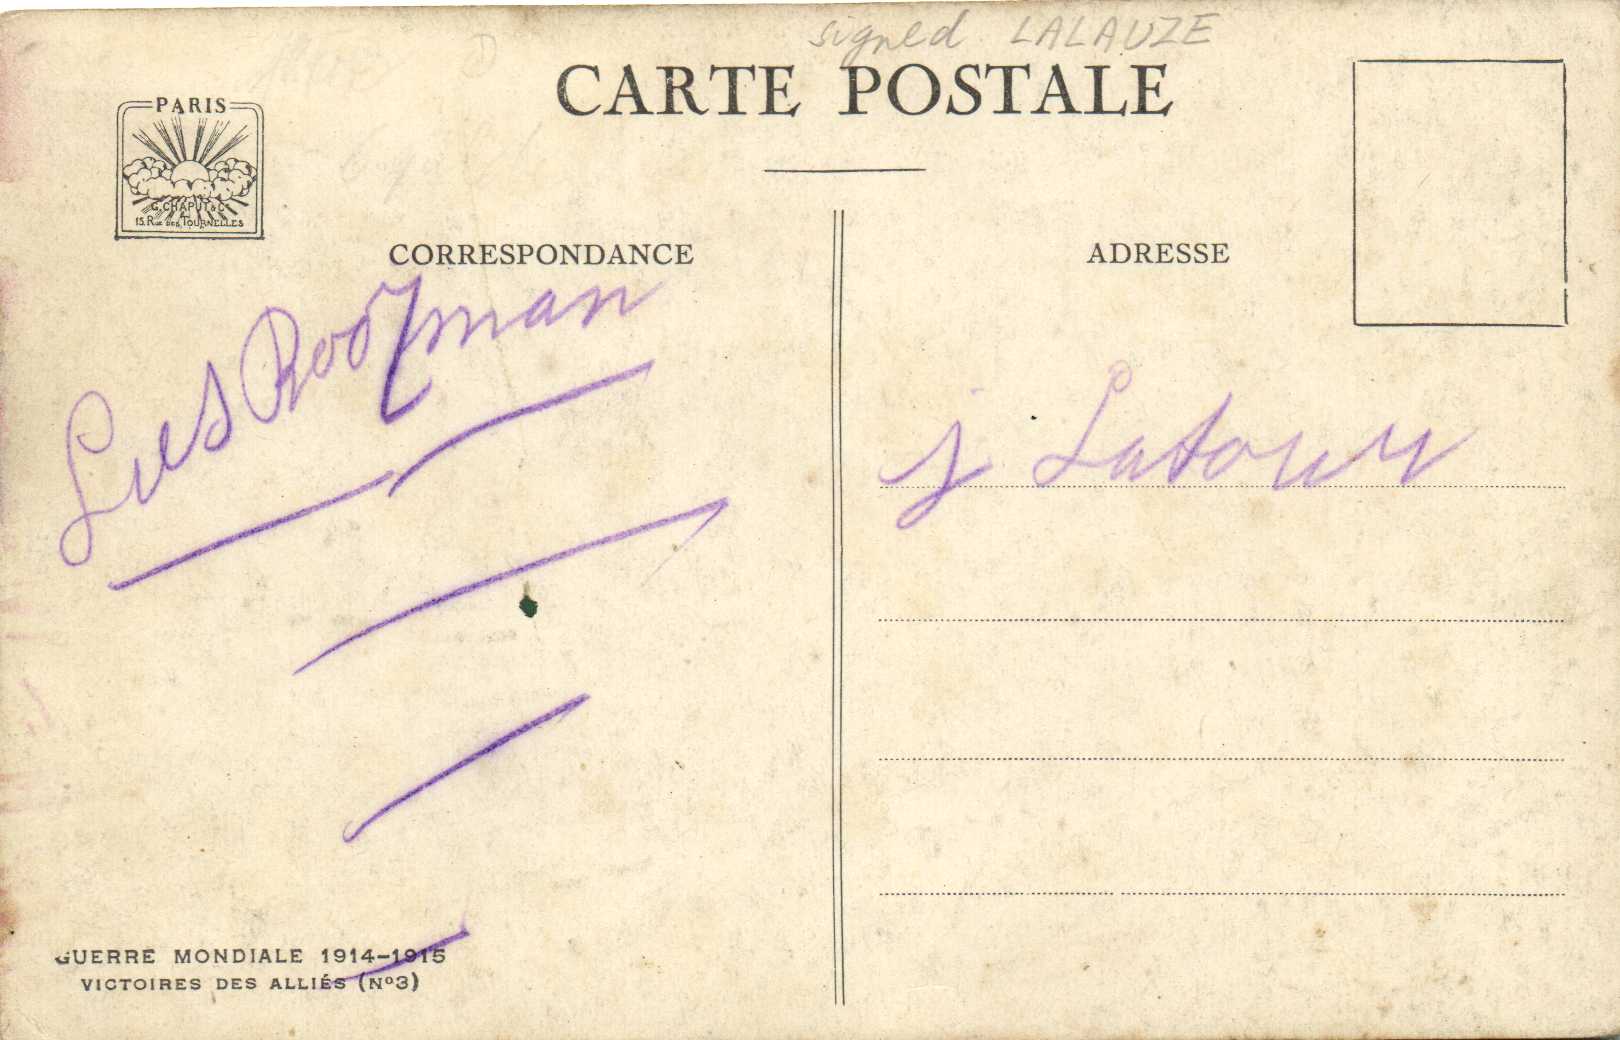 signed LALAUZE
CARTE POSTALE
PARIS
G. CHAPUT & Cie
15. Rue des Tournelles
CORRESPONDANCE
ADRESSE
j Latour
GUERRE MONDIALE 1914-1915
VICTOIRES DES ALLIÉS (Nº3)